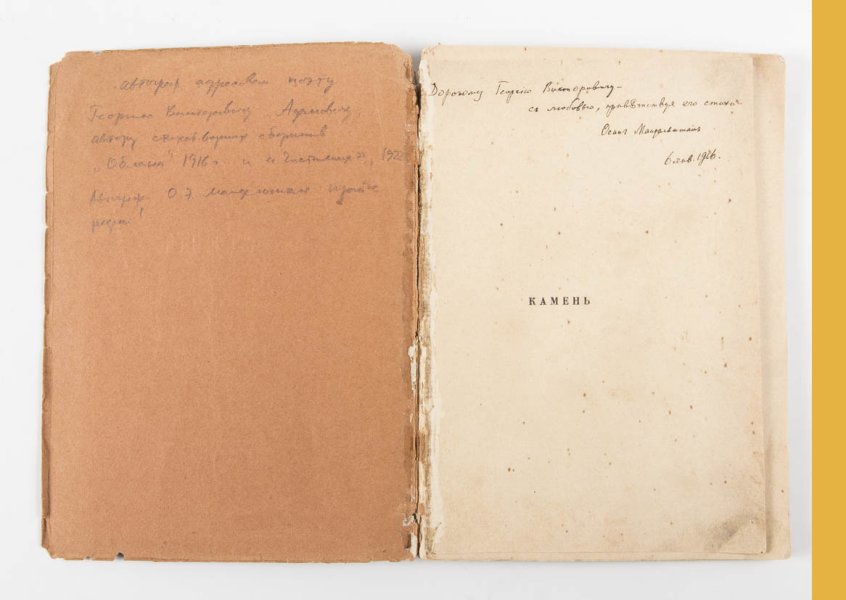 автограф адресован поэту
Георгию Викторовичу Адамовичу
автору стихотворных сборников
„Облака" 1916 г. и „Чистилище", 1922
Автограф О Э Мандельштама
Дорогому Георгию Викторовичу –
съ любовью, привѣтствуя его стихи
Осип Мандельштамъ
6 янв. 1916.
КАМЕНЬ